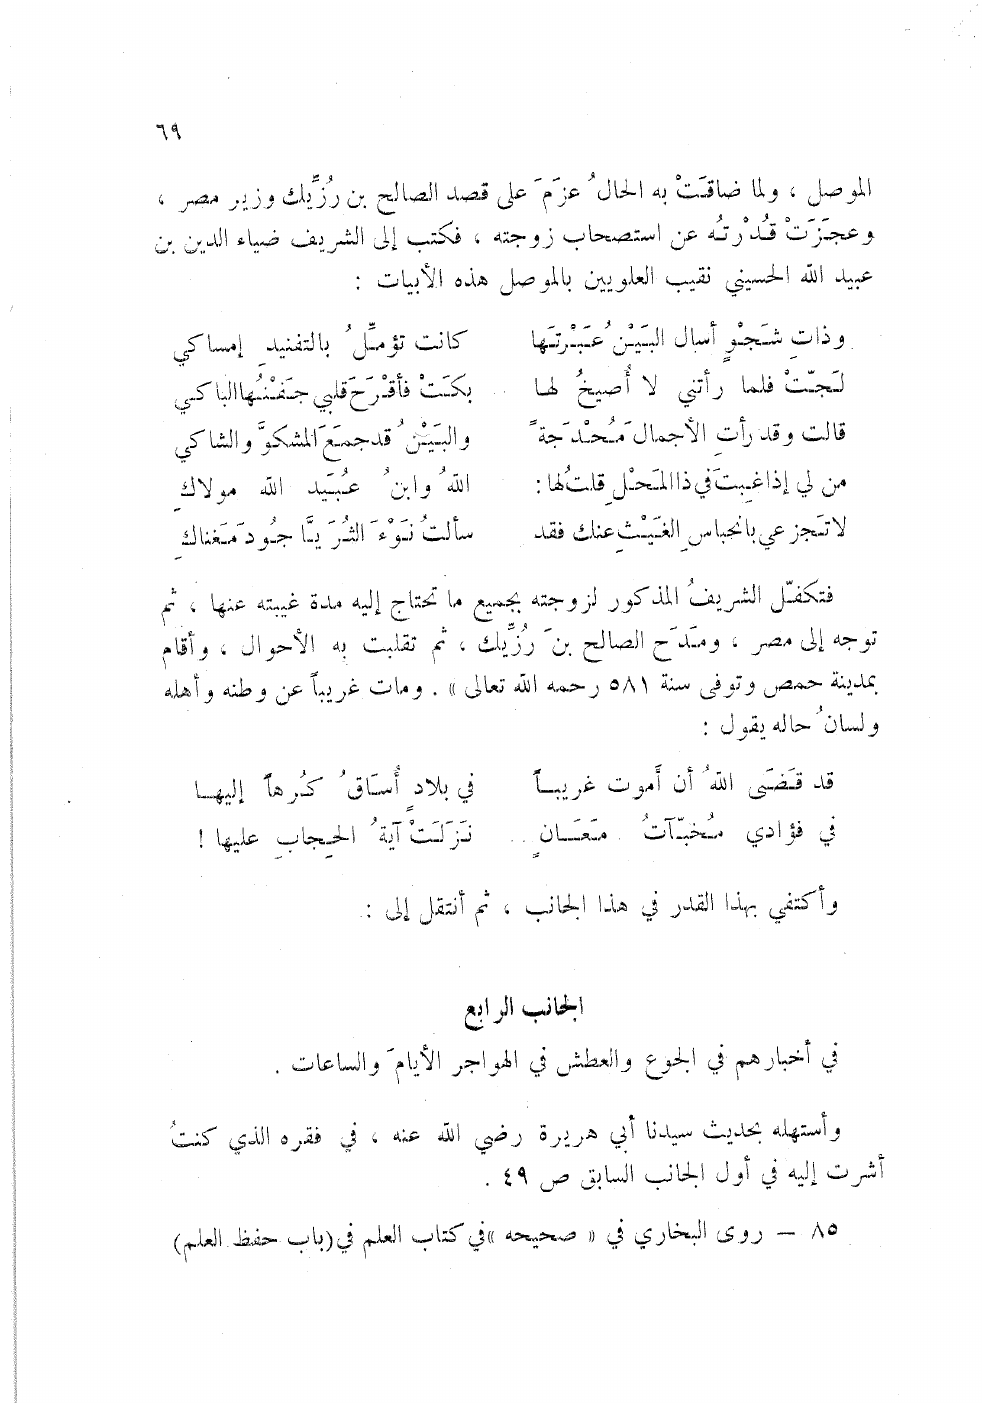 ٦٩
الموصل ، ولما ضاقَتْ به الحالُ عزَمَ على قصد الصالح بن رُزِّيك وزير مصر ،
وعجَزَتْ قُدْرتُه عن استصحاب زوجته ، فكتب إلى الشريف ضياء الدين بن
عبيد الله الحسيني نقيب العلويين بالموصل هذه الأبيات :
وذاتِ شَجْوٍ أسال البَيْنُ عَبْرتَها كانت تؤمِّلُ بالتفنيدِ إمساكي
لَجّتْ فلما رأتني لا أُصيخُ لها بكَتْ فأقْرَحَ قلبي جَفْنُها الباكي
قالت وقد رأتِ الأجمالَ مُحْدَجةً والبَيْنُ قد جمَعَ المشكوَّ والشاكي
من لي إذا غبتَ في ذا المَحْلِ قلتُ لها : اللهُ وابنُ عُبَيد الله مولاكِ
لا تَجزعي بانحباسِ الغَيْثِ عنك فقد سألتُ نَوْءَ الثُرَيَّا جُودَ مَغناكِ
فتكفّل الشريفُ المذكور لزوجته بجميع ما تحتاج إليه مدة غيبته عنها ، ثم
توجه إلى مصر ، ومَدَح الصالح بنَ رُزِّيك ، ثم تقلبت به الأحوال ، وأقام
بمدينة حمص وتوفى سنة ٥٨١ رحمه الله تعالى » . ومات غريباً عن وطنه وأهله
ولسانُ حاله يقول :
قد قَضَى اللهُ أن أموت غريبـاً في بلادٍ أُسَاقُ كُرهاً إليهـا
في فؤادي مُخبّآتُ مَعَـانٍ نَزَلَتْ آيةُ الحِجابِ عليها !
وأكتفي بهذا القدر في هذا الجانب ، ثم أنتقل إلى :
الجانب الرابع
في أخبارهم في الجوع والعطش في الهواجر الأيامَ والساعات .
وأستهله بحديث سيدنا أبي هريرة رضي الله عنه ، في فقره الذي كنتُ
أشرت إليه في أول الجانب السابق ص ٤٩ .
٨٥ – روى البخاري في « صحيحه »في كتاب العلم في (باب حفظ العلم)